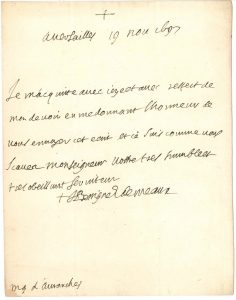 a versailles 19 nov 1697
Je macquitte avec joye et avec respect de
mon devoir en me donnant lhonneur de
vous envoyer cet ecrit et je suis comme vous
scavez monseigneur vostre tres humble et
tres obeissant serviteur
+ J Benigne E de meaux
mg d'avranches